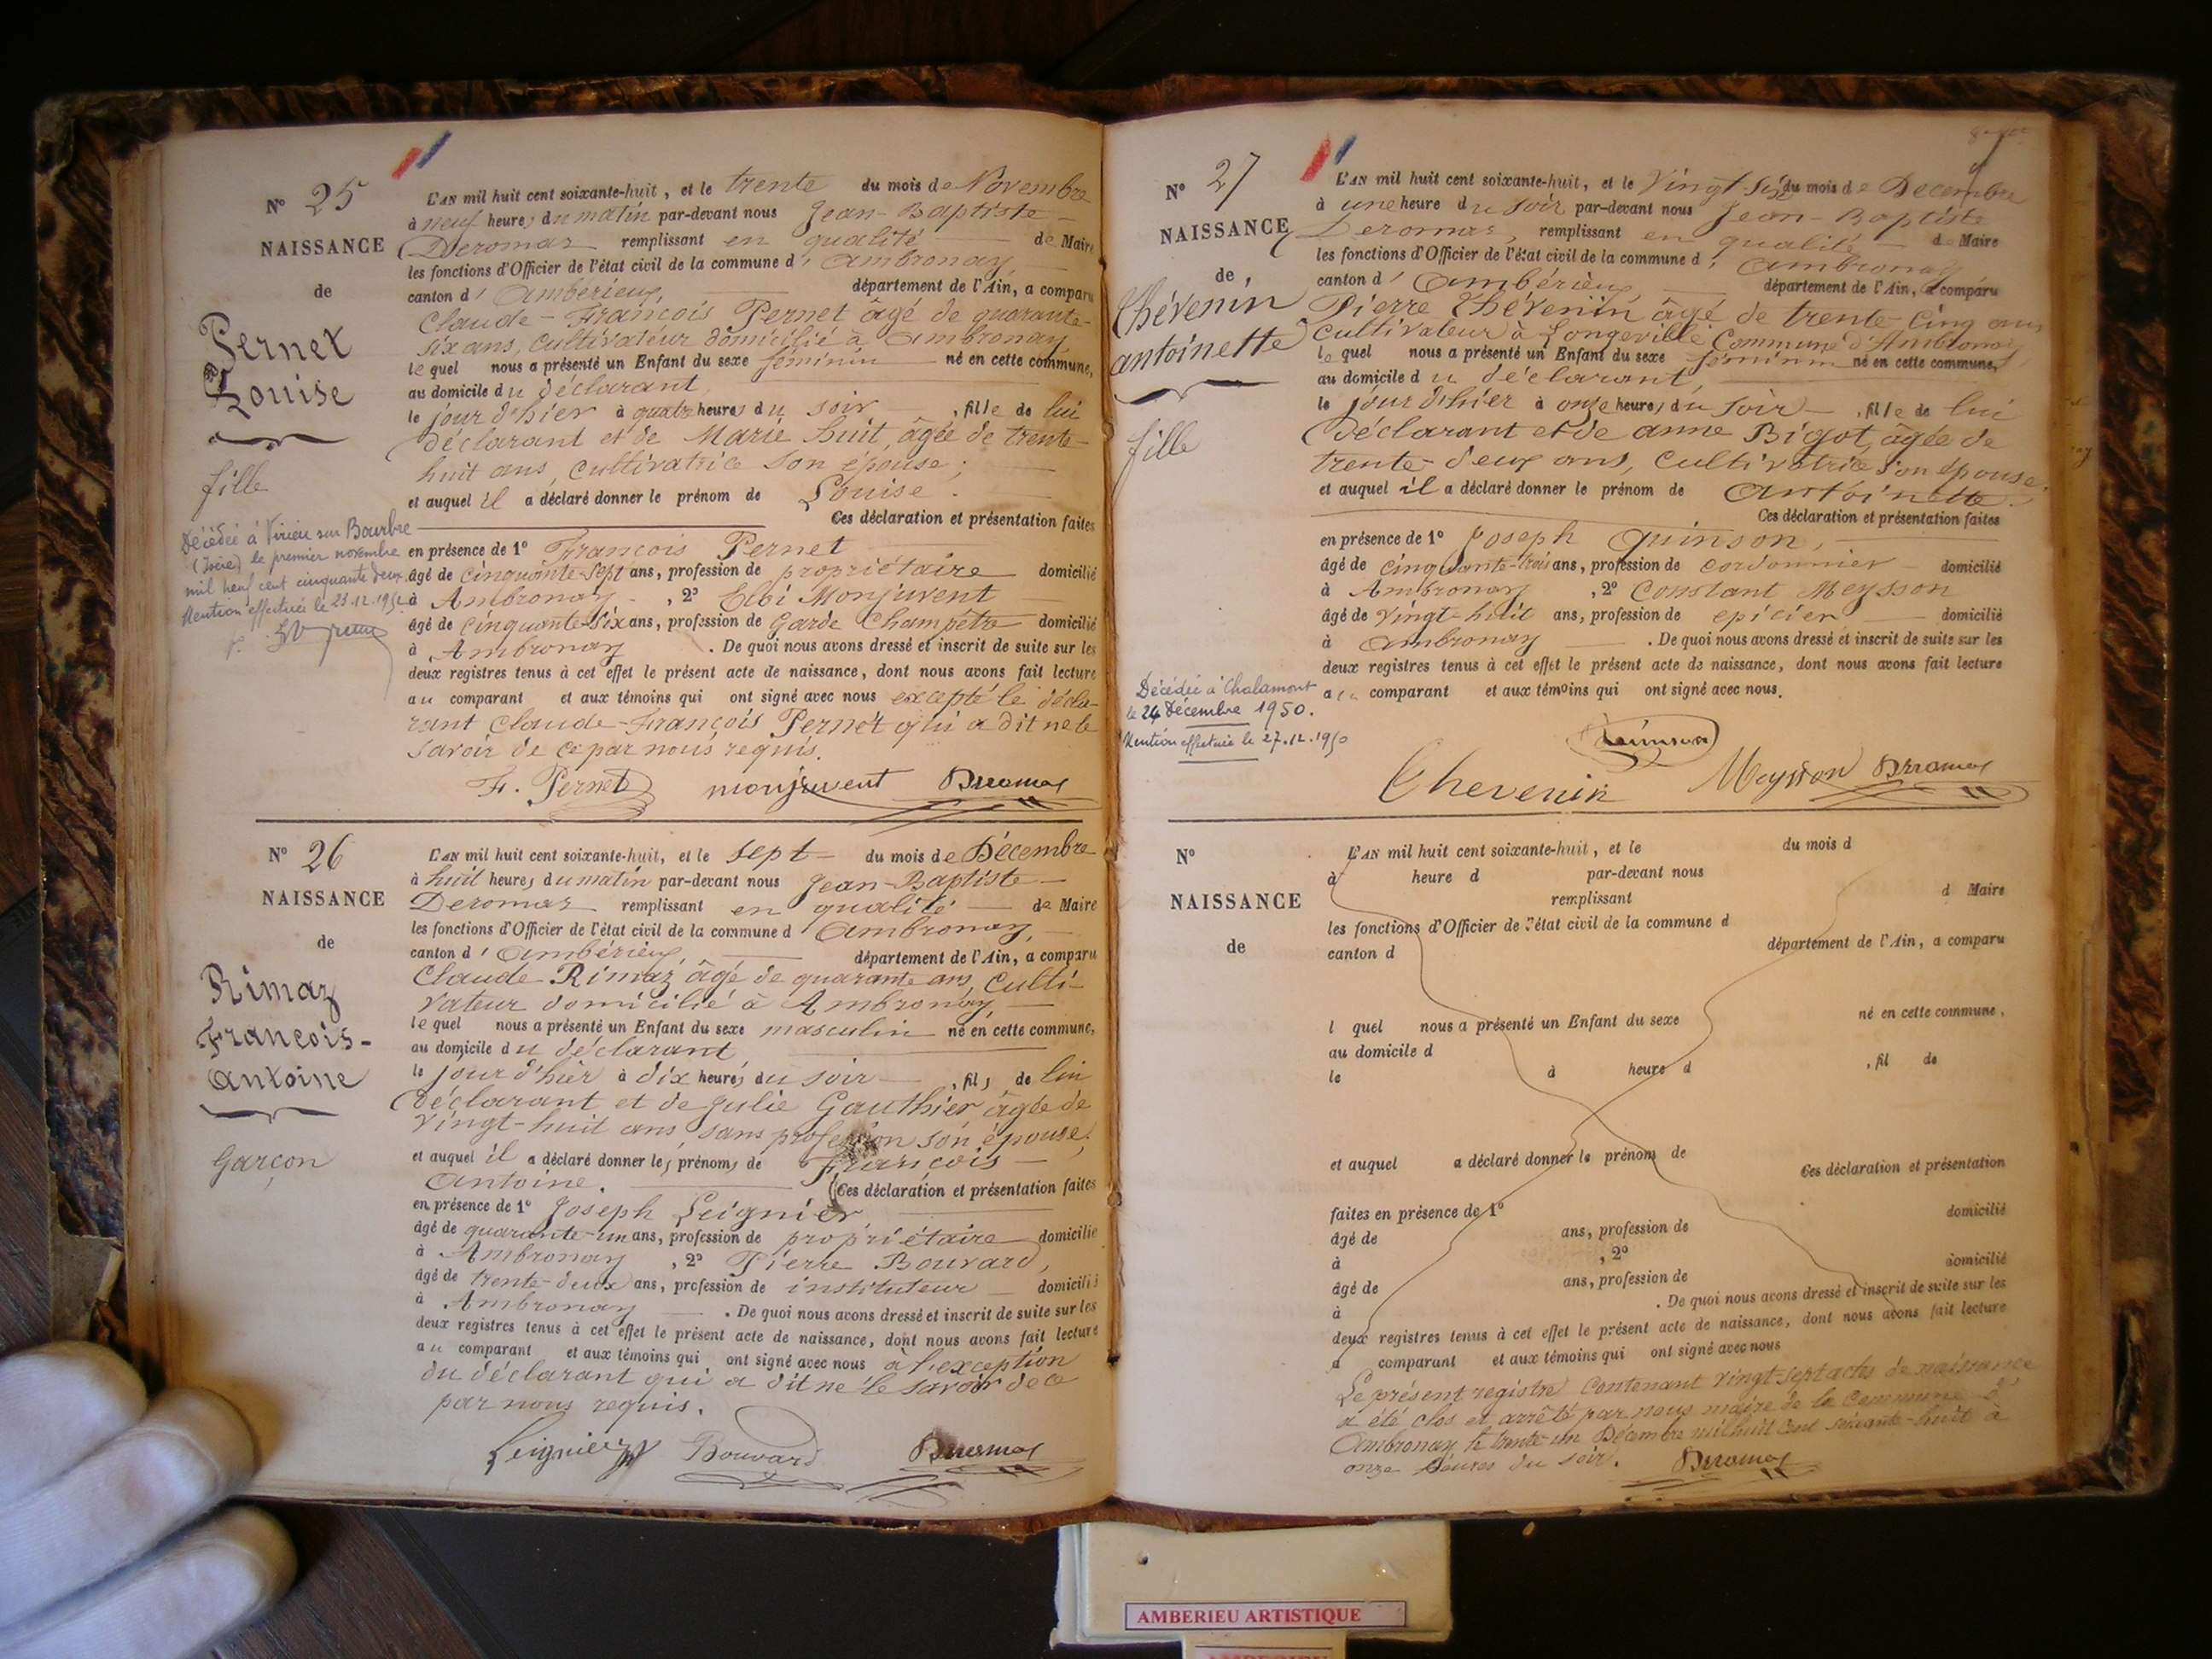 N° 25
NAISSANCE
de
Pernet
Louise
fille
Décédée à Virieu sur Bourbre
(Isère) le premier novembre
mil neuf cent cinquante deux
Mention effectuée le 23.12.1952
L'AN mil huit cent soixante-huit, et le trente du mois de Novembre
à neuf heures du matin par-devant nous Jean-Baptiste
Deromas remplissant en qualité de Maire
les fonctions d'Officier de l'état civil de la commune d'Ambronay,
canton d'Ambérieux, département de l'Ain, a comparu
Claude-François Pernet âgé de quarante-
six ans, cultivateur domicilié à Ambronay
lequel nous a présenté un Enfant du sexe féminin né en cette commune,
au domicile du déclarant,
le jour d'hier à quatre heures du soir, fille de lui
déclarant et de Marie huit, âgée de trente-
huit ans, cultivatrice son épouse;
et auquel il a déclaré donner le prénom de Louise.
Ces déclaration et présentation faites
en présence de 1° François Pernet
âgé de cinquante-sept ans, profession de propriétaire domicilié
à Ambronay, 2° Eloi Monjuvent
âgé de cinquante-six ans, profession de Garde Champêtre domicilié
à Ambronay. De quoi nous avons dressé et inscrit de suite sur les
deux registres tenus à cet effet le présent acte de naissance, dont nous avons fait lecture
au comparant et aux témoins qui ont signé avec nous excepté le décla-
rant Claude-François Pernet qui a dit ne le
savoir de ce par nous requis.
F. Pernet monjuvent Deromas
N° 26
NAISSANCE
de
Rimaz
François-
Antoine
Garçon
L'AN mil huit cent soixante-huit, et le sept du mois de Décembre
à huit heures du matin par-devant nous Jean-Baptiste
Deromas remplissant en qualité de Maire
les fonctions d'Officier de l'état civil de la commune d'Ambronay,
canton d'Ambérieux, département de l'Ain, a comparu
Claude Rimaz âgé de quarante ans, culti-
vateur domicilié à Ambronay
lequel nous a présenté un Enfant du sexe masculin né en cette commune,
au domicile du déclarant
le jour d'hier à dix heures du soir, fils de lui
déclarant et de Julie Gauthier âgée de
vingt-huit ans, sans profession son épouse,
et auquel il a déclaré donner les prénoms de François
Antoine. Ces déclaration et présentation faites
en présence de 1° Joseph Leignier
âgé de quarante-un ans, profession de propriétaire domicilié
à Ambronay, 2° Pierre Bouvard,
âgé de trente-deux ans, profession de instituteur domicilié
à Ambronay. De quoi nous avons dressé et inscrit de suite sur les
deux registres tenus à cet effet le présent acte de naissance, dont nous avons fait lecture
au comparant et aux témoins qui ont signé avec nous à l'exception
du déclarant qui a dit ne le savoir de ce
par nous requis.
Leignier Bouvard Deromas
N° 27
NAISSANCE
de
Thévenin
antoinette
fille
Décédée à Chalamont
le 24 Décembre 1950.
Mention effectuée le 27.12.1950
L'AN mil huit cent soixante-huit, et le Vingt six du mois de Décembre
à une heure du soir par-devant nous Jean-Baptiste
Deromas, remplissant en qualité de Maire
les fonctions d'Officier de l'état civil de la commune d'Ambronay
canton d'Ambérieux, département de l'Ain, a comparu
Pierre Thévenin âgé de trente-cinq ans
cultivateur à Longeville Commune d'Ambronay
lequel nous a présenté un Enfant du sexe féminin né en cette commune,
au domicile du déclarant,
le jour d'hier à onze heures du soir, fille de lui
déclarant et de anne Bigot, âgée de
trente-deux ans, cultivatrice son épouse.
et auquel il a déclaré donner le prénom de Antoinette.
Ces déclaration et présentation faites
en présence de 1° Joseph Quinson,
âgé de cinquante-trois ans, profession de cordonnier domicilié
à Ambronay, 2° Constant Meysson
âgé de vingt-huit ans, profession de epicier domicilié
à Ambronay. De quoi nous avons dressé et inscrit de suite sur les
deux registres tenus à cet effet le présent acte de naissance, dont nous avons fait lecture
au comparant et aux témoins qui ont signé avec nous.
Quinson
Thevenin Meysson Deromas
N°
NAISSANCE
de
L'AN mil huit cent soixante-huit, et le du mois d
à heure d par-devant nous
remplissant d Maire
les fonctions d'Officier de l'état civil de la commune d
canton d département de l'Ain, a comparu
l quel nous a présenté un Enfant du sexe né en cette commune,
au domicile d
le à heure d , fil de
et auquel a déclaré donner le prénom de
Ces déclaration et présentation
faites en présence de 1°
âgé de ans, profession de domicilié
à , 2°
âgé de ans, profession de domicilié
à . De quoi nous avons dressé et inscrit de suite sur les
deux registres tenus à cet effet le présent acte de naissance, dont nous avons fait lecture
a comparant et aux témoins qui ont signé avec nous
Le présent registre contenant vingt-sept actes de naissance
a été clos et arrêté par nous maire de la Commune d'
Ambronay, le trente-un Décembre mil huit cent soixante-huit à
onze heures du soir. Deromas
AMBERIEU ARTISTIQUE